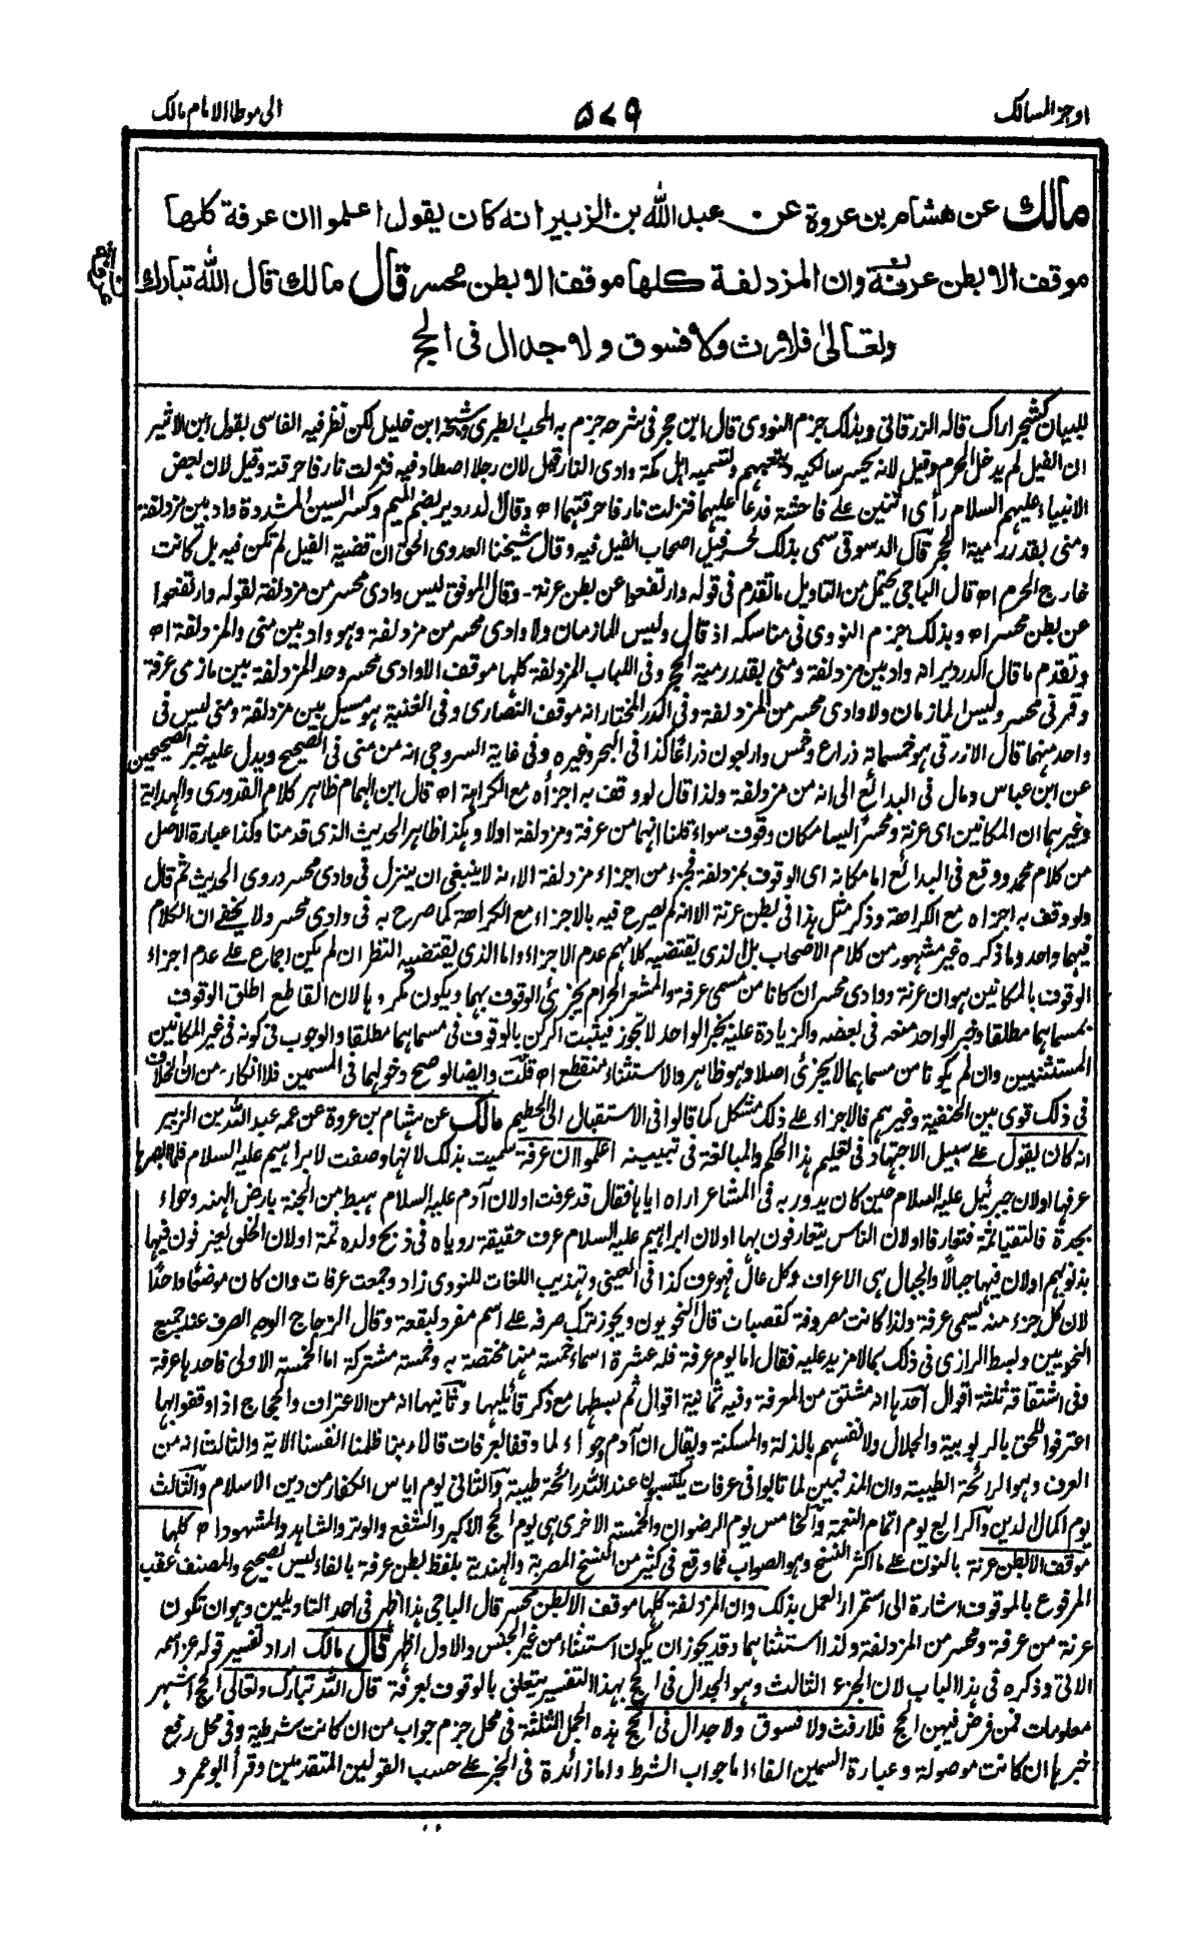 اوجز المسالك
٥٧٩
الى موطا الامام مالك
مالك عن هشام بن عروة عن عبد الله بن الزبير انه كان يقول اعلموا ان عرفة كلها
موقف الا بطن عرنة وان المزدلفة كلها موقف الا بطن محسر قال مالك قال الله تبارك
وتعالى فلا رفث ولا فسوق ولا جدال فى الحج
للبيان كشجر اراك قاله الزرقانى وبذلك جزم النووى قال ابن حجر فى شرحه جزم به المحب الطبرى وشيخه ابن خليل لكن نظر فيه الفاسى بقول ابن الاثير
ان الفيل لم يدخل الحرم وقيل لانه يحسر سالكيه ويتعبهم وتسميه اهل مكة وادى النار قيل لان رجلا اصطاد فيه فنزلت نار فاحرقته وقيل لان بعض
الانبياء عليهم السلام رأى اثنين على فاحشة فدعا عليهما فنزلت نار فاحرقتهما اه وقال الدردير بضم الميم وكسر السين المشددة واد بين مزدلفة
ومنى بقدر رمية الحجر قال الدسوقى سمى بذلك لحسر فيل اصحاب الفيل فيه وقال شيخنا العدوى الحق ان قضية الفيل لم تكن فيه بل كانت
خارج الحرم اه قال الباجى يحتمل من التاويل ما تقدم فى قوله وارتفعوا عن بطن عرنة - وقال الموفق ليس وادى محسر من مزدلفة لقوله وارتفعوا
عن بطن محسر اه وبذلك جزم النووى فى مناسكه اذ قال وليس المازمان ولا وادى محسر من مزدلفة وهو واد بين منى والمزدلفة اه
وتقدم ما قال الدردير انه واد بين مزدلفة ومنى بقدر رمية الحجر وفى اللباب المزدلفة كلها موقف الا وادى محسر وحد المزدلفة بين مازمى عرفة
وقرنى محسر وليس المازمان ولا وادى محسر من المزدلفة وفى الدر المختار انه موقف النصارى وفى الغنية هو مسيل بين مزدلفة ومنى ليس فى
واحد منهما قال الازرقى هو خمسمائة ذراع وخمس واربعون ذراعا كذا فى البحر وغيره وفى غاية السروجى انه من منى فى الصحيح ويدل عليه خبر الصحيحين
عن ابن عباس ومال فى البدائع الى انه من مزدلفة ولذا قال لو وقف به اجزأه مع الكراهة اه قال ابن الهمام ظاهر كلام القدورى والهداية
وغيرهما ان المكانين اى عرنة ومحسر اليسا مكان وقوف سواء قلنا انهما من عرفة ومزدلفة اولا وهكذا ظاهر الحديث الذى قدمنا وكذا عبارة الاصل
من كلام محمد ووقع فى البدائع اما مكانه اى الوقوف بمزدلفة فجزء من اجزاء مزدلفة الا انه لا ينبغى ان ينزل فى وادى محسر وروى الحديث ثم قال
ولو وقف به اجزاه مع الكراهة وذكر مثل هذا فى بطن عرنة الا انه لم يصرح فيه بالاجزاء مع الكراهة كما صرح به فى وادى محسر ولا يخفى ان الكلام
فيهما واحد وما ذكره غير مشهور من كلام الاصحاب بل الذى يقتضيه كلامهم عدم الاجزاء واما الذى يقتضيه النظر ان لم يكن اجماع على عدم اجزاء
الوقوف بالمكانين هو ان عرنة ووادى محسر ان كانا من مسمى عرفة والمشعر الحرام يجزئ الوقوف بهما ويكون مكروها لان القاطع اطلق الوقوف
بمسماهما مطلقا وخبر الواحد منعه فى بعضه والزيادة عليه بخبر الواحد لا تجوز فيثبت الركن بالوقوف فى مسماهما مطلقا والوجوب فى كونه فى غير المكانين
المستثنيين وان لم يكونا من مسماهما لا يجزئ اصلا وهو ظاهر والاستثناء منقطع اه قلت وايضا لو صح دخولهما فى المسمين فلا انكار من ان الخلاف
فى ذلك قوى بين الحنفية وغيرهم فالاجزاء على ذلك مشكل كما قالوا فى الاستقبال الى الحطيم مالك عن هشام بن عروة عن عمه عبد الله بن الزبير
انه كان يقول على سبيل الاجتهاد فى تعليم هذا الحكم والمبالغة فى تبيينه اعلموا ان عرفة سميت بذلك لانها وصفت لابراهيم عليه السلام فلما ابصرها
عرفها او لان جبرئيل عليه السلام حين كان يدور به فى المشاعر اراه اياها فقال قد عرفت او لان آدم عليه السلام هبط من الجنة بارض الهند وحواء
بجدة فالتقيا ثمة فتعارفا او لان الناس يتعارفون بها او لان ابراهيم عليه السلام عرف حقيقة روياه فى ذبح ولده ثمة او لان الخلق يعترفون فيها
بذنوبهم او لان فيها جبالا والجبال هى الاعراف وكل عال فهو عرف كذا فى العينى وتهذيب اللغات للنووى زاد وجمعت عرفات وان كان موضعا واحدا
لان كل جزء منه يسمى عرفة ولذا كانت مصروفة كقصبات قال النحويون ويجوز ترك صرفه على اسم مفرد لبقعة وقال الزجاج الوجه الصرف عند جميع
النحويين وبسط الرازى فى ذلك بما لا مزيد عليه فقال اما يوم عرفة فله عشرة اسماء خمسة منها مختصة به وخمسة مشتركة اما الخمسة الاولى فاحدها عرفة
وفى اشتقاقه ثلثة اقوال احدها انه مشتق من المعرفة وفيه ثمانية اقوال ثم بسطها مع ذكر قائليها وثانيها انه من الاعتراف والحجاج اذا وقفوا بها
اعترفوا للحق بالربوبية والجلال ولانفسهم بالذلة والمسكنة ويقال ان آدم وحواء لما وقفا بعرفات قالا ربنا ظلمنا انفسنا الاية والثالث انه من
العرف وهو الرائحة الطيبة وان المذنبين لما تابوا فى عرفات يكتسبون عند الله رائحة طيبة والثانى يوم اياس الكفار من دين الاسلام والثالث
يوم اكمال الدين والرابع يوم اتمام النعمة والخامس يوم الرضوان والخمسة الاخرى هى يوم الحج الاكبر والشفع والوتر والشاهد والمشهود اه كلها
موقف الا بطن عرنة بالنون على ما اكثر النسخ وهو الصواب فما وقع فى كثير من النسخ المصرية والهندية بلفظ بطن عرفة بالفاء ليس بصحيح والمصنف عقب
المرفوع بالموقوف اشارة الى استمرار العمل بذلك وان المزدلفة كلها موقف الا بطن محسر قال الباجى هذا اظهر فى احد التاويلين وهو ان تكون
عرنة من عرفة ومحسر من المزدلفة ولذا استثناهما وقد يجوز ان يكون استثناء من غير الجنس والاول اظهر قال مالك اراد تفسير قوله عز اسمه
الاتى وذكره فى هذا الباب لان الجزء الثالث وهو الجدال فى الحج بهذا التفسير يتعلق بالوقوف بعرفة قال الله تبارك وتعالى الحج اشهر
معلومات فمن فرض فيهن الحج فلا رفث ولا فسوق ولا جدال فى الحج هذه الجمل الثلثة فى محل جزم جواب من ان كانت شرطية وفى محل رفع
خبرها ان كانت موصولة وعبارة السمين الفاء اما جواب الشرط واما زائدة فى الخبر على حسب القولين المتقدمين وقرأ ابو عمرو